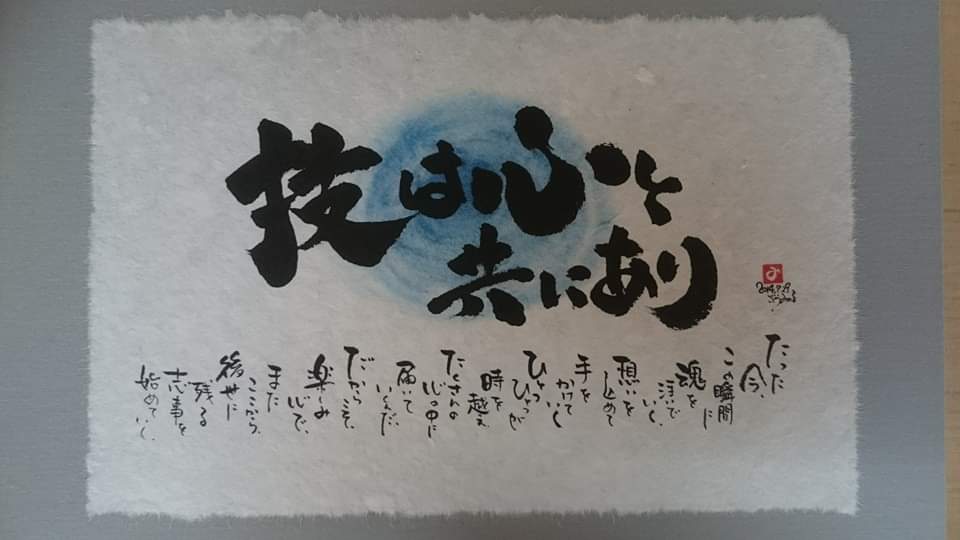 技は心と
共にあり
たった
今、
この瞬間に
魂を
注いで
いく、
想いを
込めて
手を
かけていく
ひとつ
ひとつが
時を越え
たくさんの
心の中に
届いて
いくんだ
だからこそ、
楽しみ
心で、
また
ここから、
後世に
残る
志事を
始めていく、